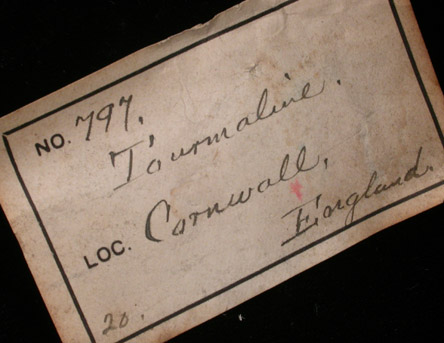 NO. 797.
Tourmaline.
LOC. Cornwall,
England.
20.